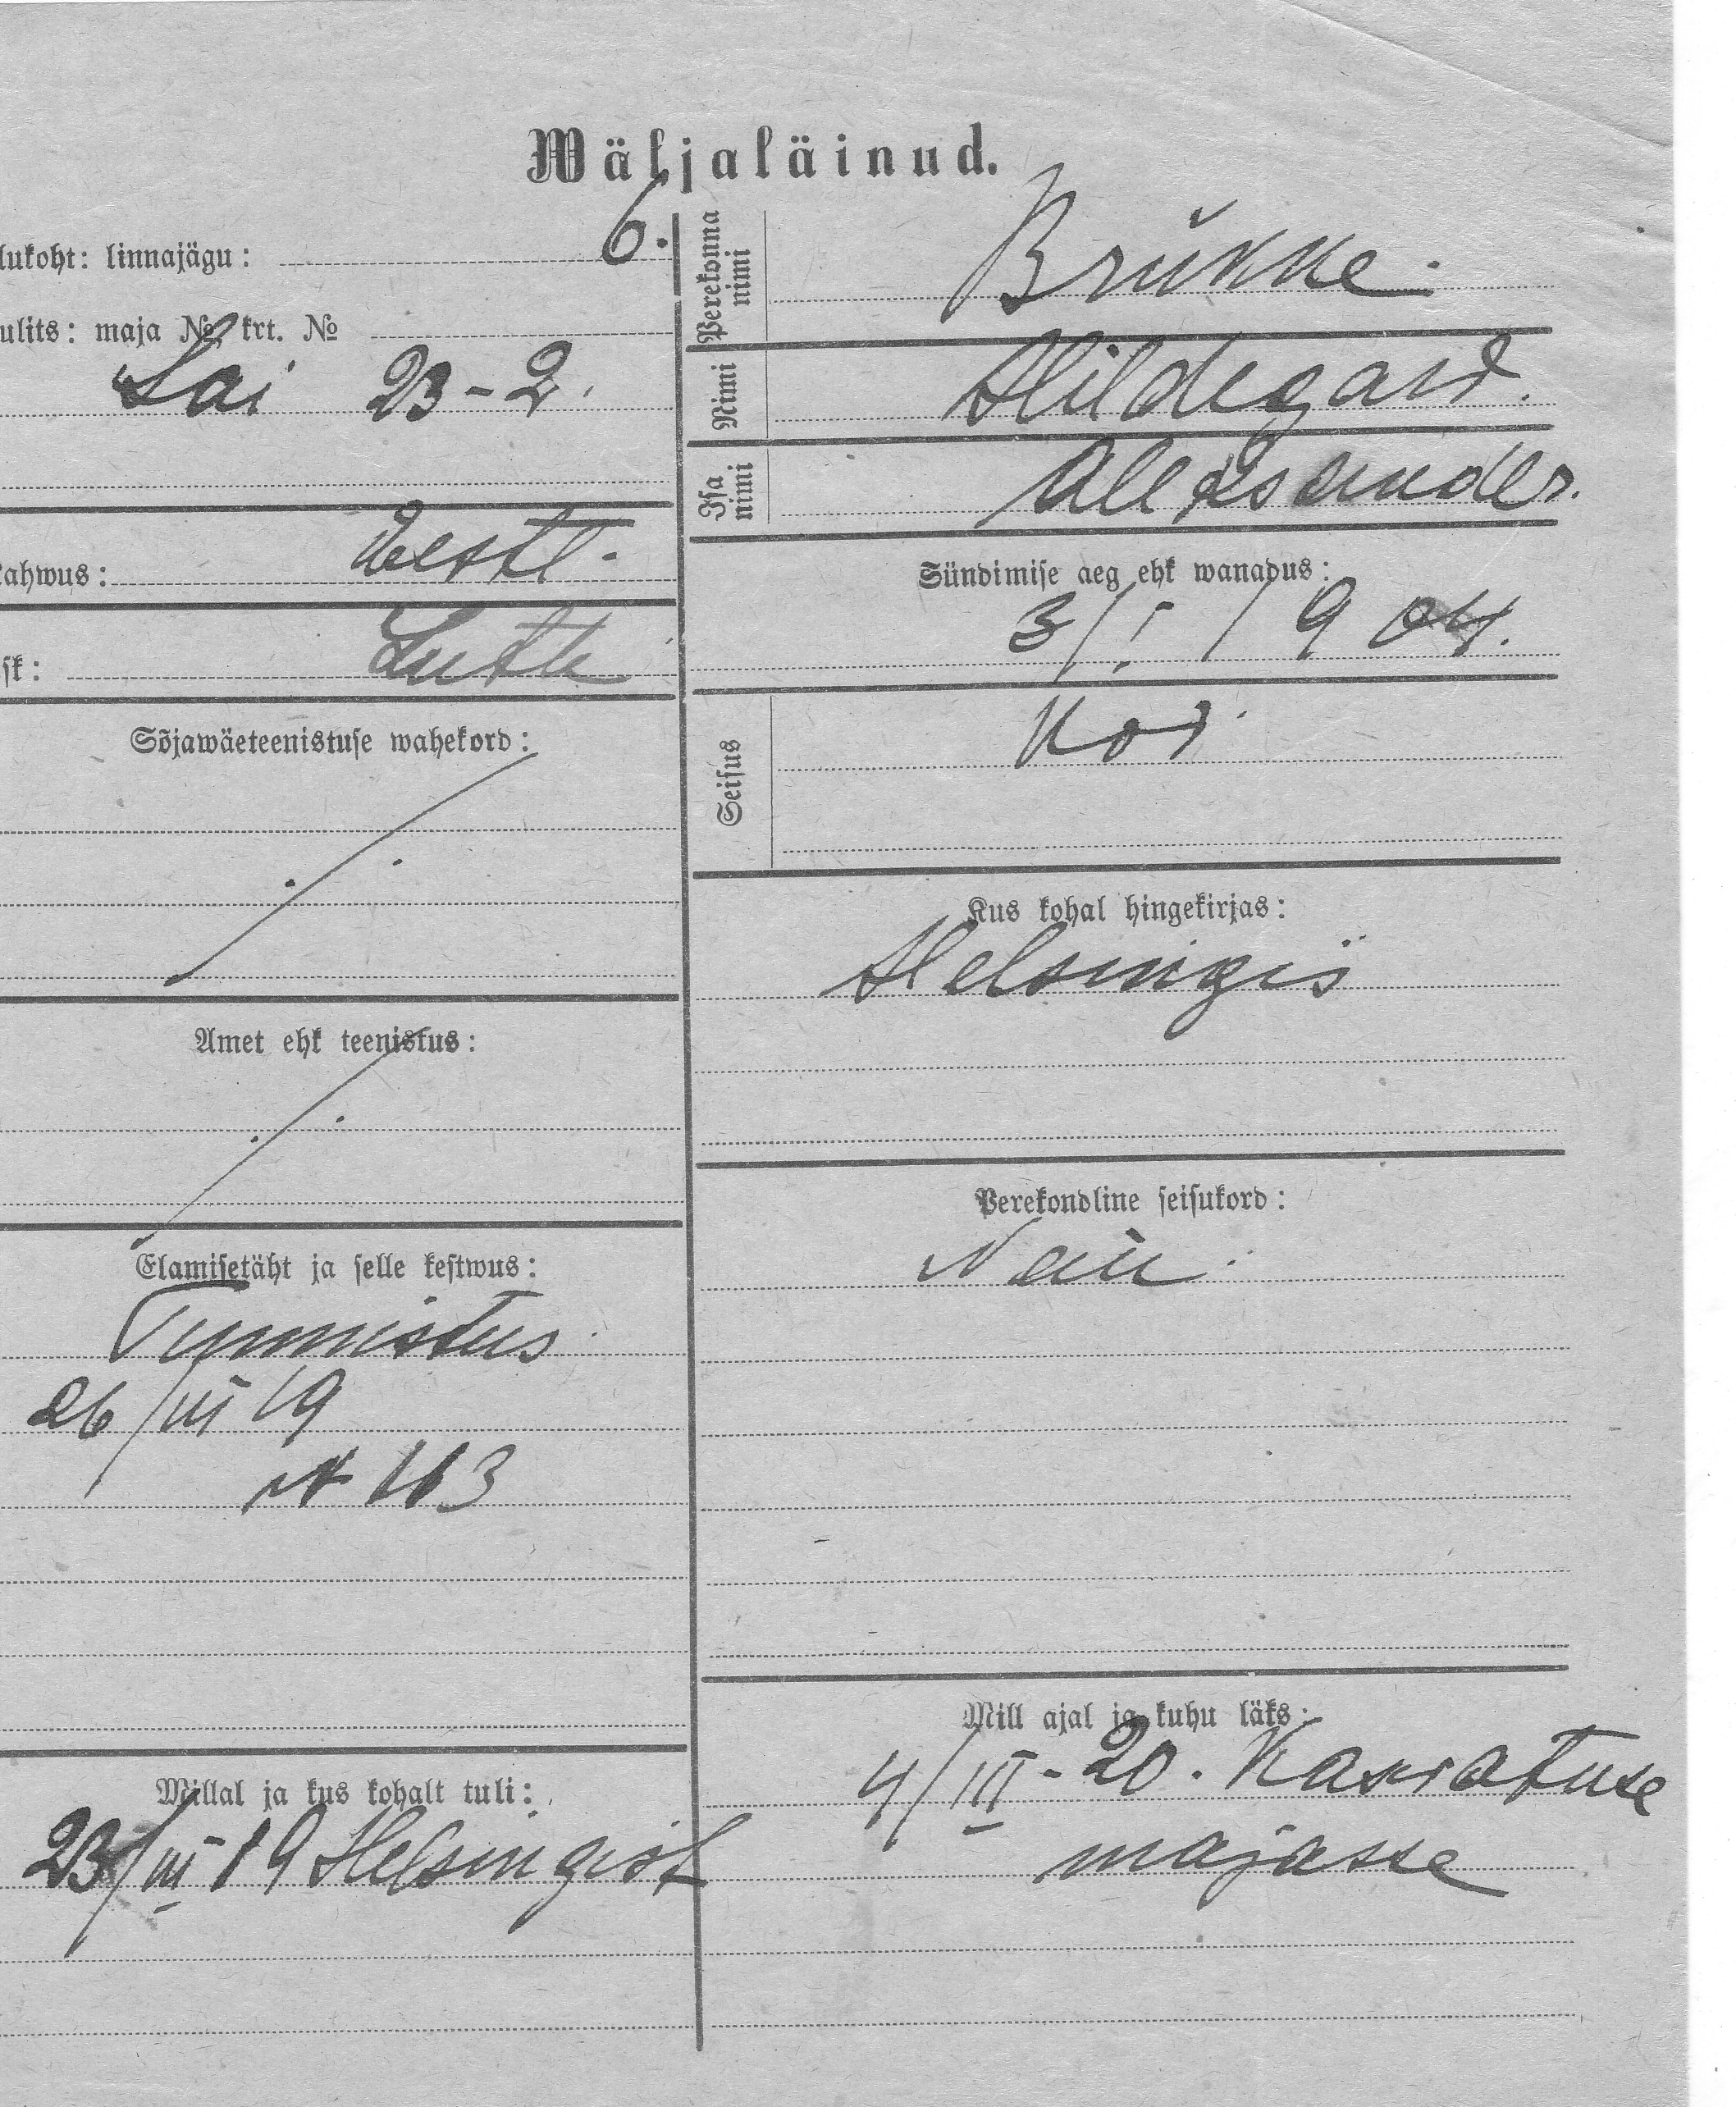 Wäljaläinud.
lukoht: linnajägu: 6.
ulits: maja № krt. №
Lai 23-2.
ahwus: Eestl.
sk: Luth
Sõjawäeteenistuse wahekord:
Amet ehk teenistus:
Elamisetäht ja selle kestwus:
Tunnistus
26/III 19
N 113
Millal ja kus kohalt tuli:
23/III 19 Helsingist
Perekonna nimi
Brükke.
Nimi
Hildegard.
Isa nimi
Aleksander.
Sündimise aeg ehk wanadus:
3/I 1904.
Seisus
Kod.
Kus kohal hingekirjas:
Helsingis
Perekondline seisukord:
Mill ajal ja kuhu läks:
4/III-20. Kasvatuse
majasse